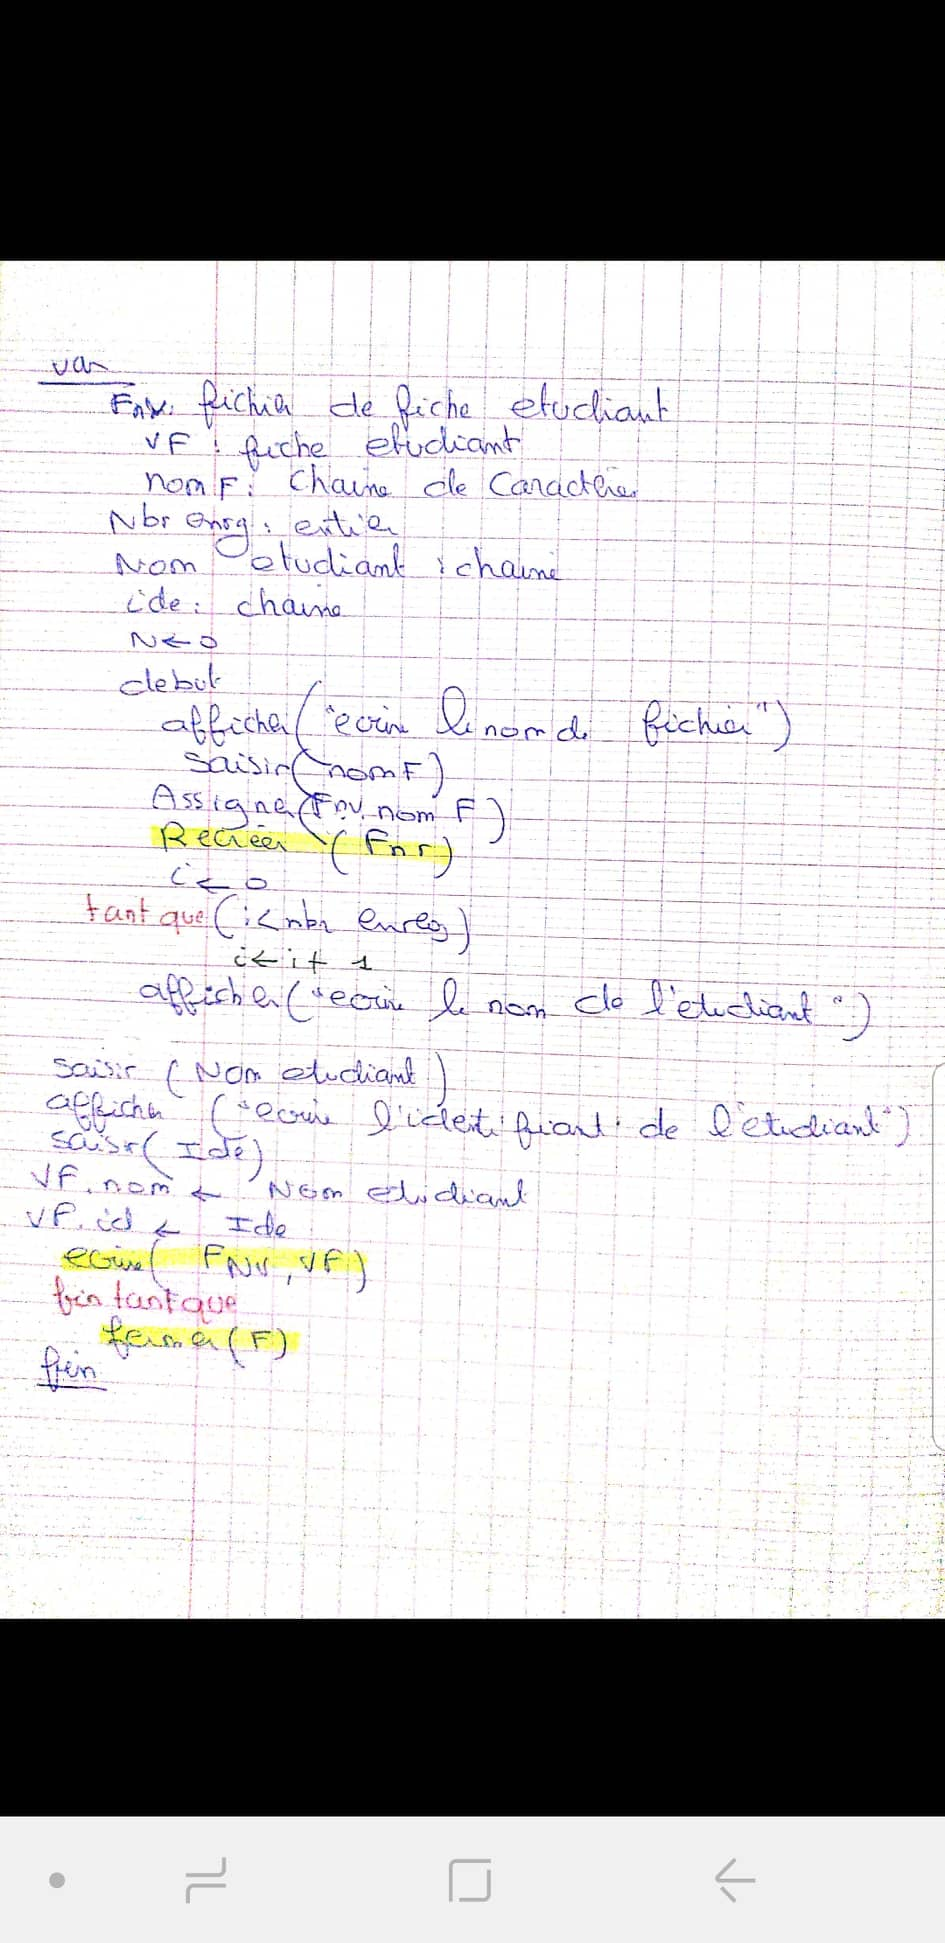 var
Fnv: fichier de fiche etudiant
VF : fiche etudiant
nom F: chaine de Caractère
Nbr enrg : entier
Nom etudiant : chaine
ide: chaine
N ← 0
debut
afficher ("ecrire le nom de fichier")
Saisir (nom F)
Assigner (Fnv, nom F)
Recréer (Fnr)
i ← 0
tant que (i < nbr enreg)
i ← i + 1
afficher ("ecrire le nom de l'etudiant")
saisir (Nom etudiant)
afficher ("ecrire l'identifiant de l'etudiant")
saisr (Ide)
VF.nom ← Nom etudiant
VF.id ← Ide
ecrire (FNV, VF)
fin tantque
fermer (F)
fin